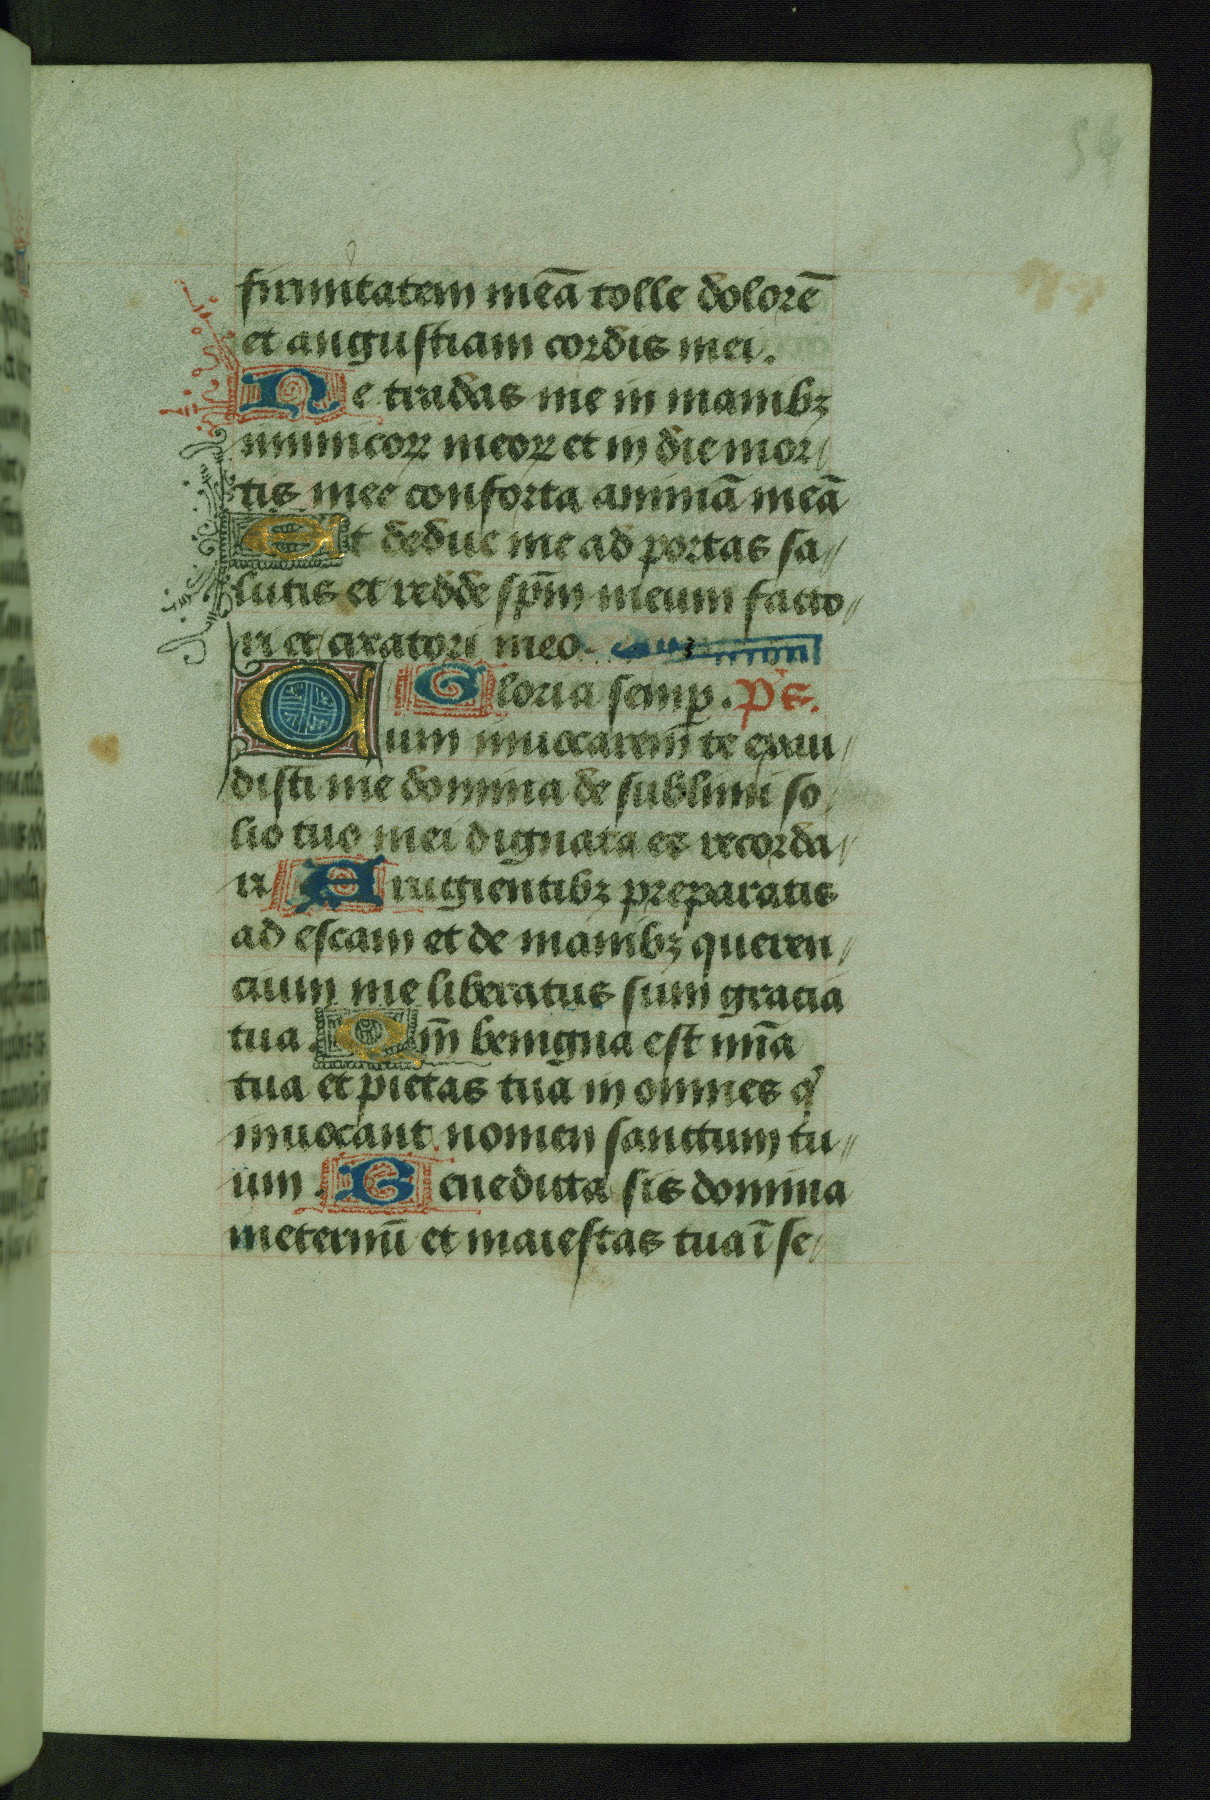 54
firmitatem meā tolle dolorē
et angustiam cordis mei.
Ne tradas me in manibꝫ
inimicoꝝ meoꝝ et in die mor/
tis mee conforta animā meā
Et deduc me ad portas sa//
lutis et redde sp̄m meum facto//
ri et creatori meo.
Gloria semꝑ. Ps.
Cum inuocarem te exau/
disti me domina de sublimi so
lio tuo mei dignata es recorda/
ri A rugientibꝫ preparatis
ad escam et de manibꝫ queren/
cium me liberatus sum gracia
tua. Qm̄ benigna est mīa
tua et pietas tua in omnes q̇
inuocant nomen sanctum tu//
um. Benedicta sis domina
ineternū et maiestas tua ī se/